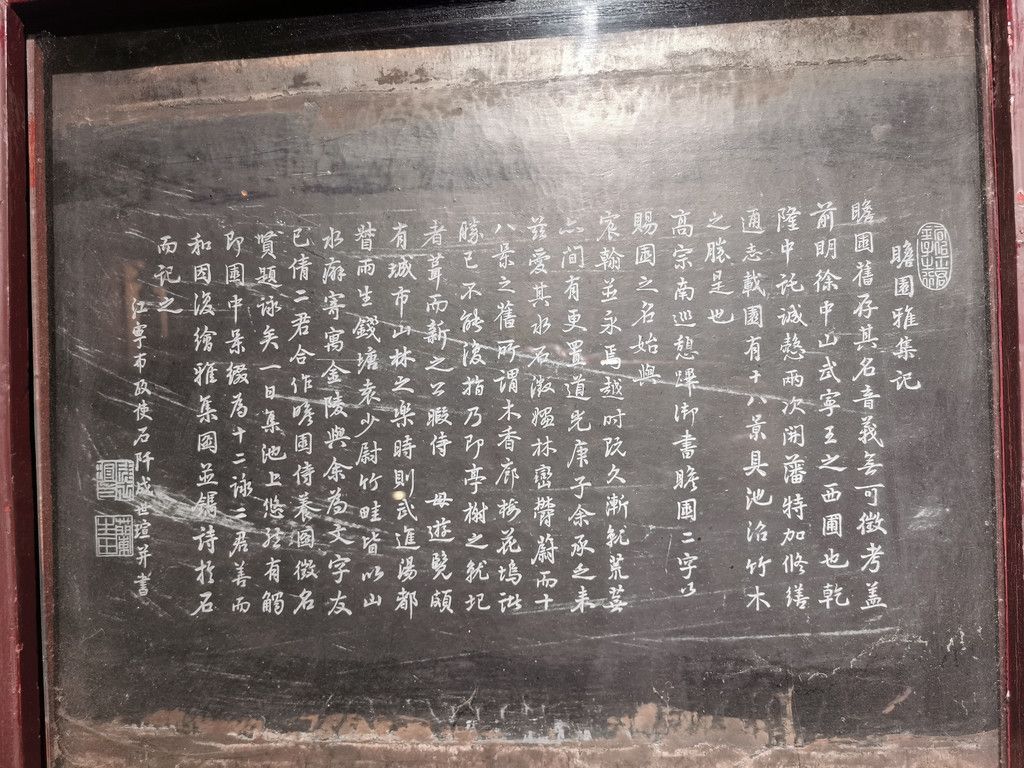 瞻園雅集記
瞻園舊存其名音義無可徵考蓋
前明徐中山武寧王之西圃也乾
隆中託誠慤兩次開藩特加修繕
通志載園有十八景具池沼竹木
之勝是也
高宗南巡憩蹕御書瞻園二字以
賜園之名始與
宸翰並永焉越時既久漸就荒蕪
間有更置道光庚子余承乏來
茲愛其水石澂 林巒鬱蔚而十
八景之舊所謂木香廊梅花塢諸
勝已不能復指乃即亭榭之就圮
者葺而新之公暇侍 母遊覽頗
有城市山林之樂時則武進湯都
督雨生錢塘袁少尉竹畦皆以山
水癖寄寓金陵與余為文字友
已倩二君合作瞻園侍養圖徵名
賢題詠矣一日集池上悠然有觸
即園中景綴為十二詠二君善而
和因復繪雅集圖並鐫詩於石
而記之
江寧布政使石阡成世瑄并書